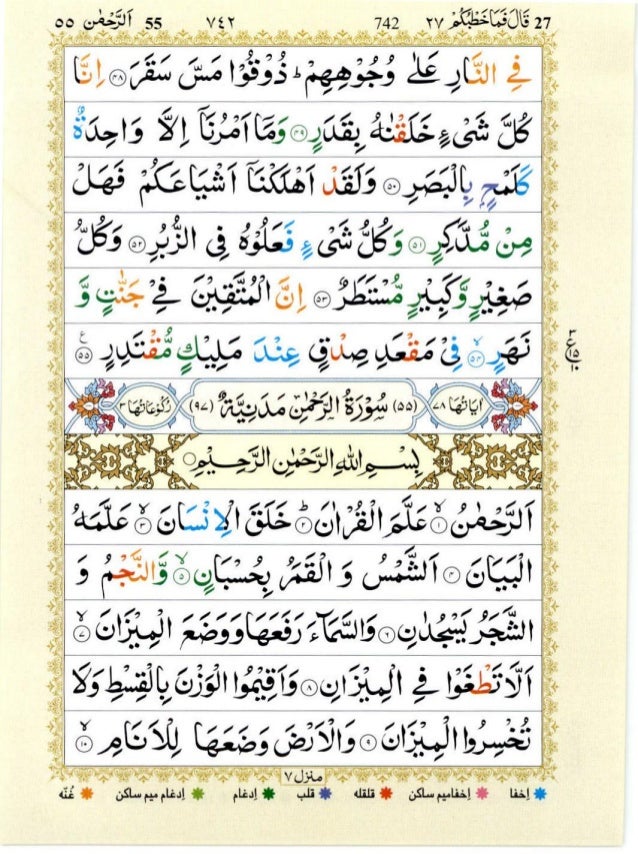 ٥٥ اَلرَّحْمٰن 55 ٧٤٢ 742 ٢٧ قَالَ فَمَا خَطْبُكُمْ 27
فِى النَّارِ عَلٰى وُجُوْهِهِمْ ؕ ذُوْقُوْا مَسَّ سَقَرَ ۝۴۸ اِنَّا
كُلَّ شَىْءٍ خَلَقْنٰهُ بِقَدَرٍ ۝۴۹ وَمَاۤ اَمْرُنَاۤ اِلَّا وَاحِدَةٌ
كَلَمْحٍۭ بِالْبَصَرِ ۝۵۰ وَلَقَدْ اَهْلَكْنَاۤ اَشْيَاعَكُمْ فَهَلْ
مِنْ مُّدَّكِرٍ ۝۵۱ وَكُلُّ شَىْءٍ فَعَلُوْهُ فِى الزُّبُرِ ۝۵۲ وَكُلُّ
صَغِيْرٍ وَّكَبِيْرٍ مُّسْتَطَرٌ ۝۵۳ اِنَّ الْمُتَّقِيْنَ فِىْ جَنّٰتٍ وَّ
نَهَرٍ ۙ۝۵۴ فِىْ مَقْعَدِ صِدْقٍ عِنْدَ مَلِيْكٍ مُّقْتَدِرٍ ۝۵۵ ع
٣ ع ١٥ ١٠
اٰيَاتُهَا ٧٨ (٥٥) سُوْرَةُ الرَّحْمٰنِ مَدَنِيَّةٌ (٩٧) رُكُوْعَاتُهَا ٣
بِسْمِ اللهِ الرَّحْمٰنِ الرَّحِيْمِ
اَلرَّحْمٰنُ ۙ۝۱ عَلَّمَ الْقُرْاٰنَ ؕ۝۲ خَلَقَ الْاِنْسَانَ ۙ۝۳ عَلَّمَهُ
الْبَيَانَ ۝۴ اَلشَّمْسُ وَ الْقَمَرُ بِحُسْبَانٍ ۙ۝۵ وَّالنَّجْمُ وَ
الشَّجَرُ يَسْجُدٰنِ ۝۶ وَالسَّمَآءَ رَفَعَهَا وَوَضَعَ الْمِيْزَانَ ۙ۝۷
اَلَّا تَطْغَوْا فِى الْمِيْزَانِ ۝۸ وَاَقِيْمُوا الْوَزْنَ بِالْقِسْطِ وَلَا
تُخْسِرُوا الْمِيْزَانَ ۝۹ وَالْاَرْضَ وَضَعَهَا لِلْاَنَامِ ۙ۝۱۰
منزل ٧
اِخفا اِخفامیم ساکن قلقله قلب اِدغام اِدغام میم ساکن غُنّه